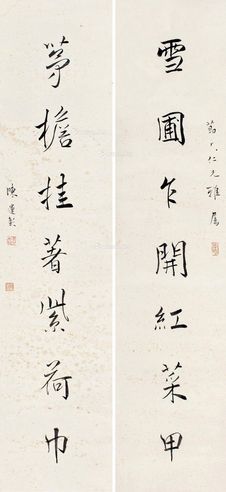 仁兄雅屬
雪圃乍開紅菜甲
茅檐挂著紫荷巾
陳運彰